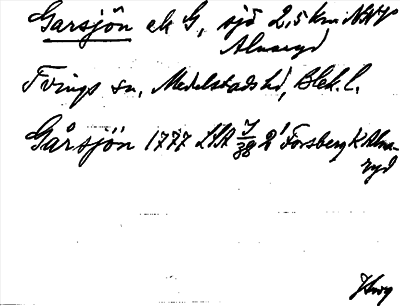 Garsjön ek G, sjö 2,5 km NNV
Alnaryd
Tvings sn, Medelstads hd, Blek. l.
Gårsjön 1777 LSA 38 2' Forsberg K Alna-
ryd